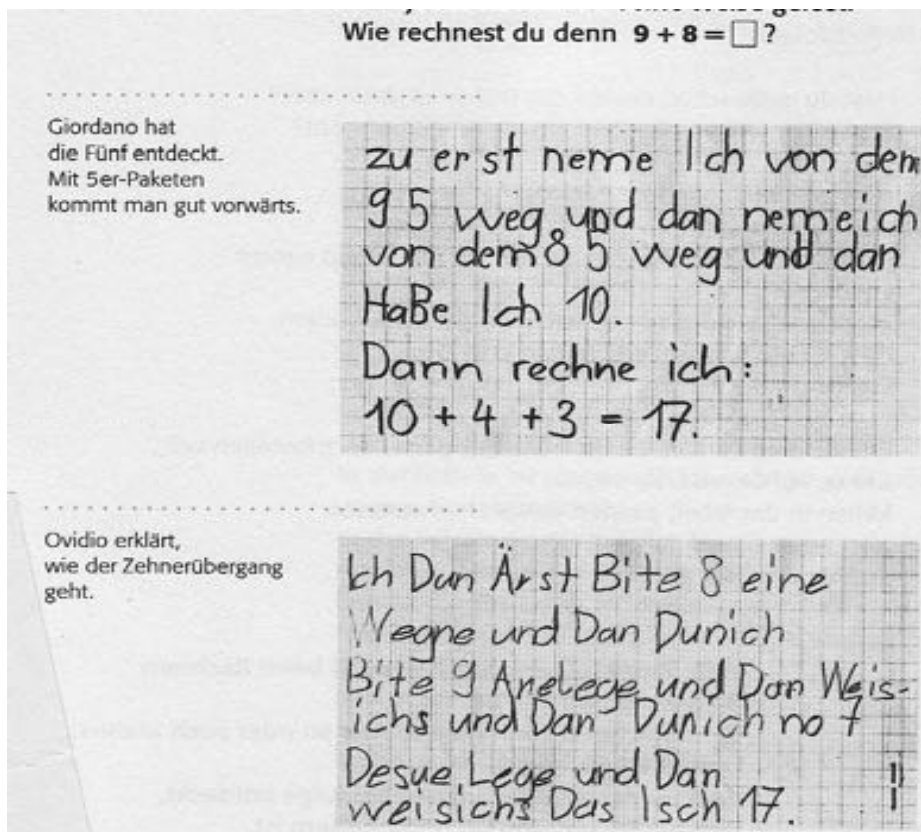 Wie rechnest du denn 9 + 8 = □ ?
Giordano hat
die Fünf entdeckt.
Mit 5er-Paketen
kommt man gut vorwärts.
zu erst neme Ich von dem
9 5 weg und dan nemeich
von dem 8 5 weg und dan
HaBe Ich 10.
Dann rechne ich:
10 + 4 + 3 = 17.
Ovidio erklärt,
wie der Zehnerübergang
geht.
Ich Dun Ärst Bite 8 eine
Wegne und Dan Dunich
Bite 9 Anelege und Dan Weis-
ichs und Dan Dunich no 7
Desue Lege und Dan
weisichs Das Isch 17. !!